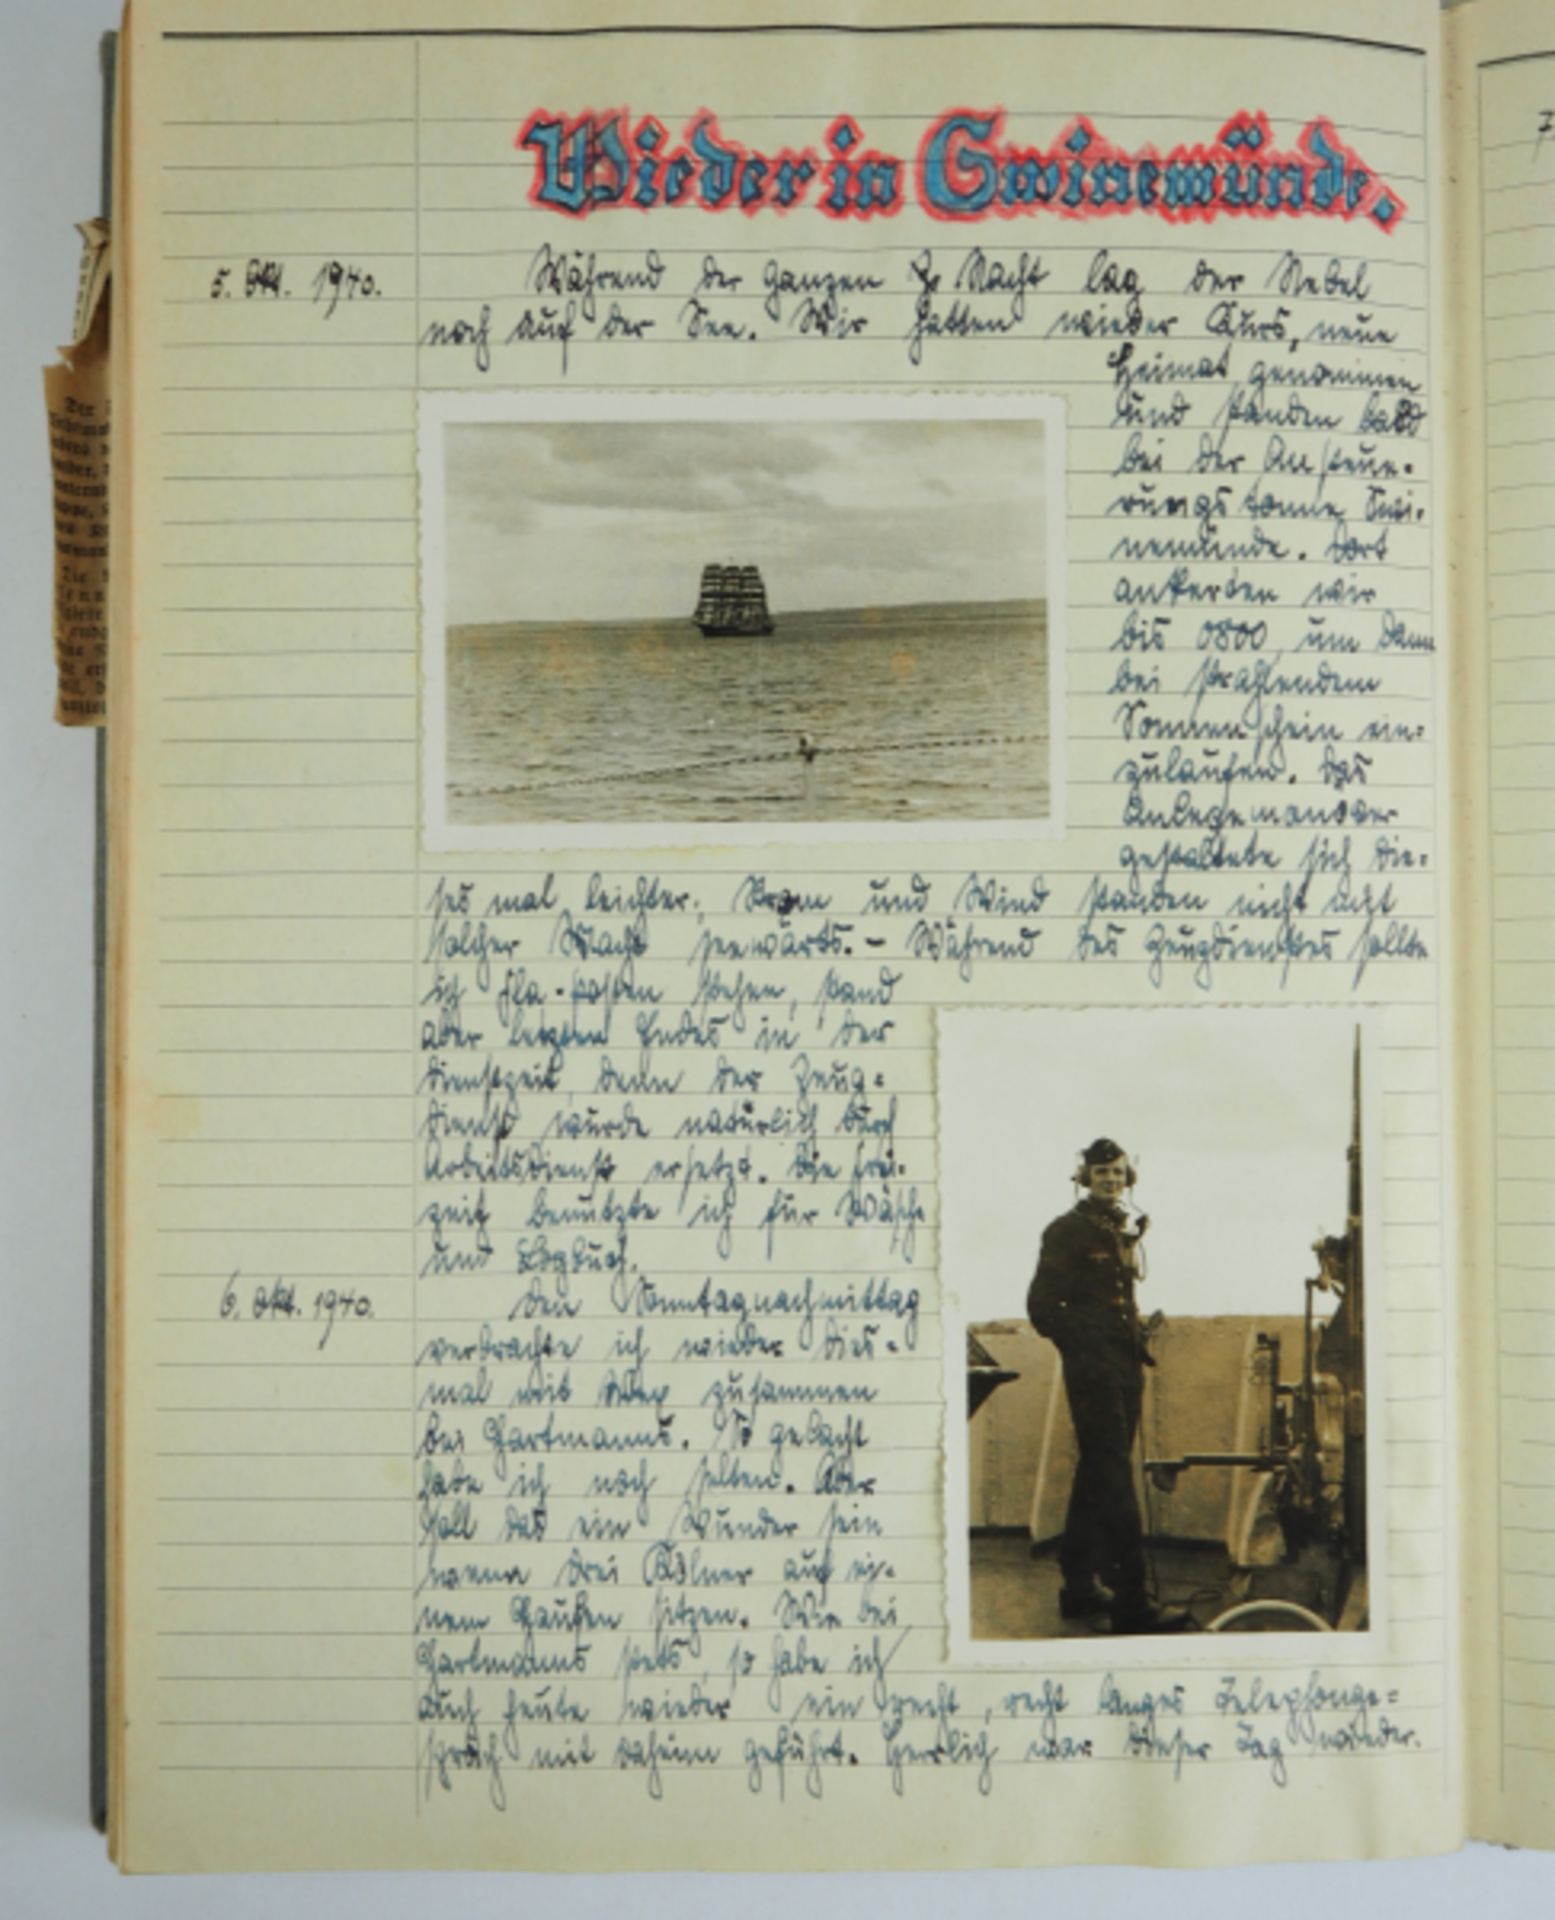 Wieder in Swinemünde.
5. Okt. 1940.
Während der ganzen Nacht lag der Nebel
noch auf der See. Wir hatten wieder Kurs, neue
Heimat genommen
und standen bald
bei der Ansteue-
rungstonne Swi-
nemünde. Dort
ankerten wir
bis 0800, um dann
bei strahlendem
Sonnenschein ein-
zulaufen. Das
Anlegemanöver
gestaltete sich die-
ses mal leichter; Strom und Wind standen nicht mit
solcher Macht seewärts. - Während des Zeugdienstes sollte
ich Fla-Posten stehen, stand
aber letzten Endes in der
Dienstzeit, denn der Zeug-
dienst wurde natürlich durch
Arbeitsdienst ersetzt. Die Frei-
zeit benutzte ich für Wäsche
und Logbuch.
6. Okt. 1940.
Den Sonntagnachmittag
verbrachte ich wieder dies-
mal mit zusammen
bei Hartmanns. So gelacht
habe ich noch selten. Aber
soll das ein Wunder sein
wenn drei Kölner auf ei-
nem Haufen sitzen. Wie bei
Hartmanns stets, so habe ich
auch heute wieder ein recht, recht langes Telephonge-
spräch mit daheim geführt. Herrlich war dieser Tag wieder.